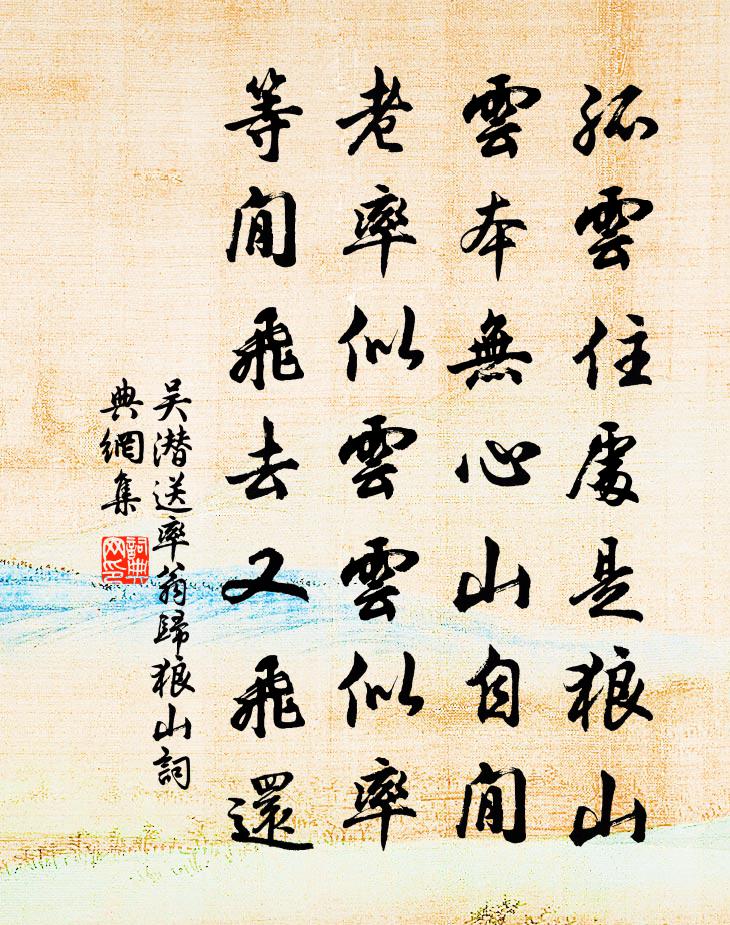 孤雲住處是狼山
雲本無心山自閒
老率似雲雲似率
等閒飛去又飛還
吴潜送率翁歸狼山詞
典網集
詞典網印